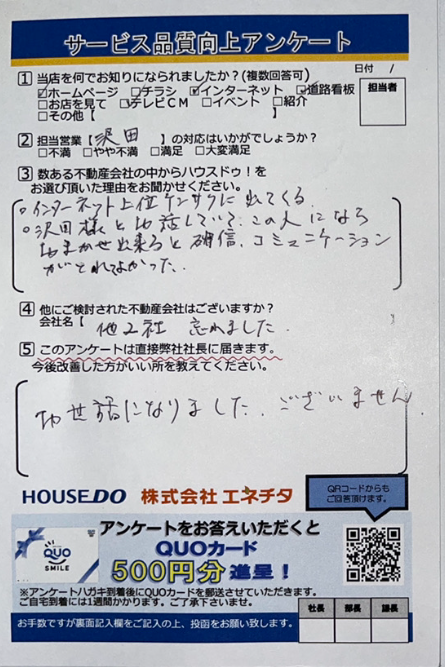 サービス品質向上アンケート
日付 /
担当者
1 当店を何でお知りになられましたか?(複数回答可)
☑ホームページ □チラシ ☑インターネット ☑道路看板
□お店を見て □テレビCM □イベント □紹介
□その他【 】
2 担当営業【沢田 】の対応はいかがでしょうか?
□不満 □やや不満 □満足 □大変満足
3 数ある不動産会社の中からハウスドゥ!を
お選び頂いた理由をお聞かせください。
○インターネット上位ケンサクに出てくる
○沢田様と お話していて、この人になら
おまかせ出来ると確信、コミュニケーション
がとれてよかった.
4 他にご検討された不動産会社はございますか?
会社名【 他2社 忘れました. 】
5 このアンケートは直接弊社社長に届きます。
今後改善した方がいい所を教えてください。
お世話になりました. ございません.
HOUSEDO 株式会社 エネチタ
QRコードからも
ご回答頂けます。
QUO
SMILE
アンケートをお答えいただくと
QUOカード
500円分 進呈!
※アンケートハガキ到着後にQUOカードを郵送させていただきます。
ご自宅到着には1週間かかります。ご了承下さいませ。
社長 部長 課長
お手数ですが裏面記入欄をご記入の上、投函をお願い致します。